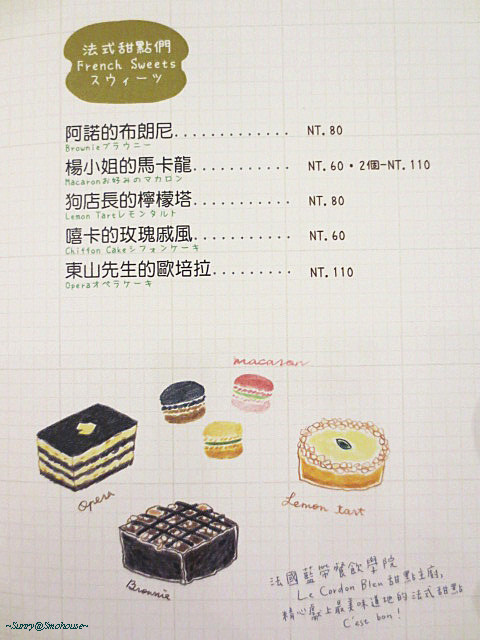 法式甜點們
French Sweets
スウィーツ
阿諾的布朗尼............. NT.80
Brownieブラウニー
楊小姐的馬卡龍........... NT.60・2個-NT.110
Macaronお好みのマカロン
狗店長的檸檬塔........... NT.80
Lemon Tartレモンタルト
嘻卡的玫瑰戚風........... NT.60
Chiffon Cakeシフォンケーキ
東山先生的歐培拉......... NT.110
Operaオペラケーキ
macaron
Opera
Lemon tart
Brownie
法國藍帶餐飲學院
Le Cordon Bleu 甜點主廚,
精心獻上最美味道地的法式甜點
C'est bon!
~Sunny@Smohouse~